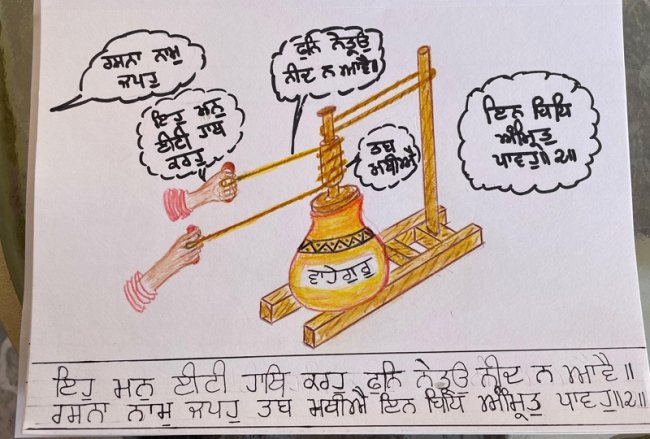 ਰਸਨਾ ਨਾਮੁ
ਜਪਹੁ
ਫੁਨਿ ਨੇਤ੍ਰਉ
ਨੀਦ ਨ ਆਵੈ॥
ਇਹੁ ਮਨੁ
ਈਟੀ ਹਾਥ
ਕਰਹੁ
ਤਬ
ਮਥੀਐ
ਇਨ ਬਿਧਿ
ਅੰਮ੍ਰਿਤੁ
ਪਾਵਹੁ॥੨॥
ਵਾਹੇਗੁਰੂ
ਇਹੁ ਮਨੁ ਈਟੀ ਹਾਥਿ ਕਰਹੁ ਫੁਨਿ ਨੇਤ੍ਰਉ ਨੀਦ ਨ ਆਵੈ॥
ਰਸਨਾ ਨਾਮੁ ਜਪਹੁ ਤਬ ਮਥੀਐ ਇਨ ਬਿਧਿ ਅੰਮ੍ਰਿਤੁ ਪਾਵਹੁ॥੨॥